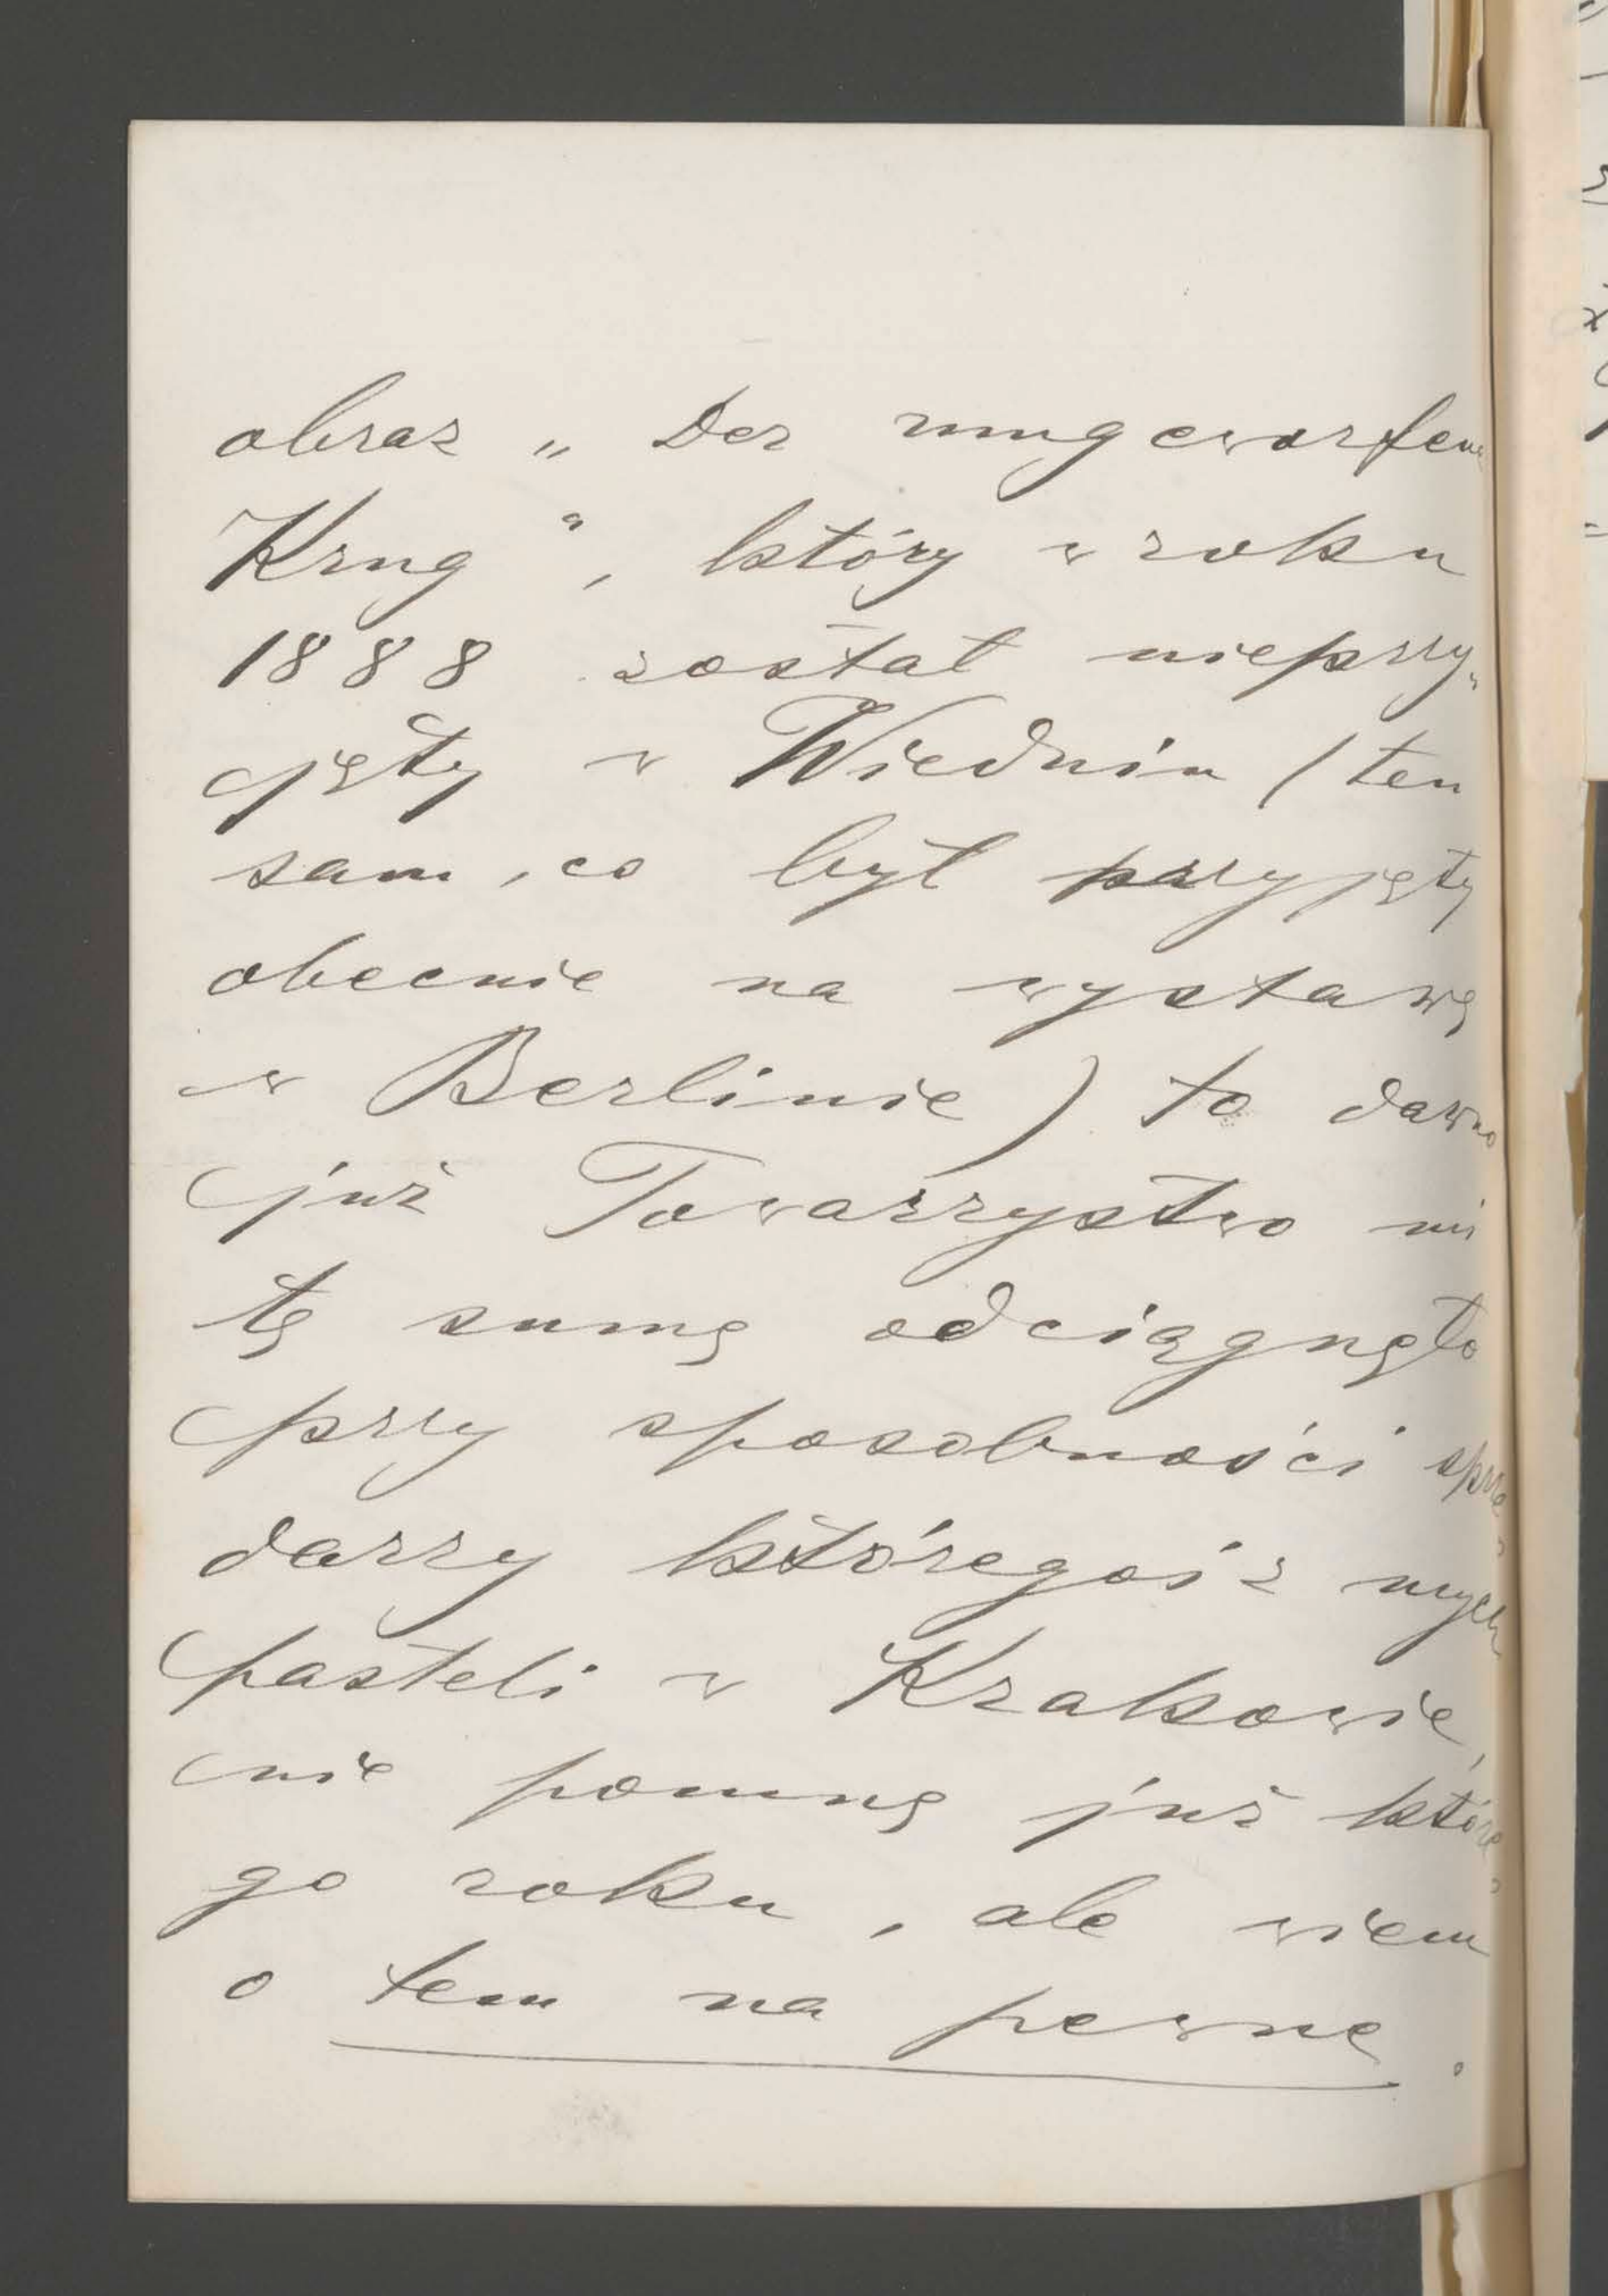 obraz „Der umgeworfene
Krug“, który w roku
1888 został nieprzy„
jęty w Wiedniu (ten
sam, co był przyjęty
obecnie na wystawę
w Berlinie) to dawno
już Towarzystwo mi
tę sumę odciągnęło
przy sposobności sprze
darzy któregoś z mych
pasteli w Krakowie,
nie pomnę już które
go roku, ale wiem
o tem na pewne.